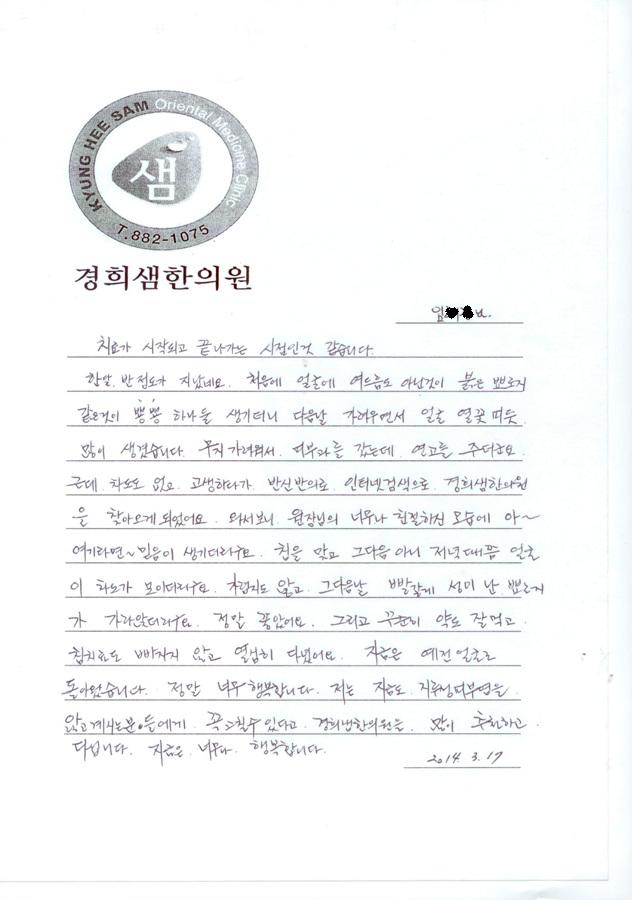 KYUNG HEE SAM Oriental Medicine Clinic
샘
T.882-1075
경희샘한의원
임 님.
치료가 시작되고 끝나가는 시점인것 같습니다.
한달. 반정도가 지났네요. 처음에 얼굴에 여드름도 아닌것이 붉은 뾰로지
같은것이 뽕뽕 하나둘 생기더니 다음날 가려우면서 얼굴 열꽃 피듯
많이 생겼습니다. 무지가려워서. 피부과를 갔는데. 연고를 주더라구요.
근데. 차도도 없고. 고생하다가. 반신반의로. 인터넷검색으로. 경희샘한의원
을 찾아오게되었어요. 와서보니. 원장님의 너무나 친절하신 모습에 아~
여기라면~ 믿음이 생기더라구요. 침을 맞고 그다음 아니 저녁때쯤 얼굴
이 차도가 보이더라구요. 가렵지도 않고. 그다음날 빨갛게 성이 난 뾰로지
가 가라앉더라구요. 정말 좋았어요. 그리고 꾸준히 약도 잘먹고.
침치료도 빠지지 않고 열심히 다녔어요. 지금은 예전얼굴로
돌아왔습니다. 정말 너무행복합니다. 저는 지금도. 지루성피부염을
앓고계시는분들에게. 꼭고칠수있다고. 경희샘한의원을. 많이 추천하고.
다닙니다. 지금은. 너무나. 행복합니다.
2014. 3. 17